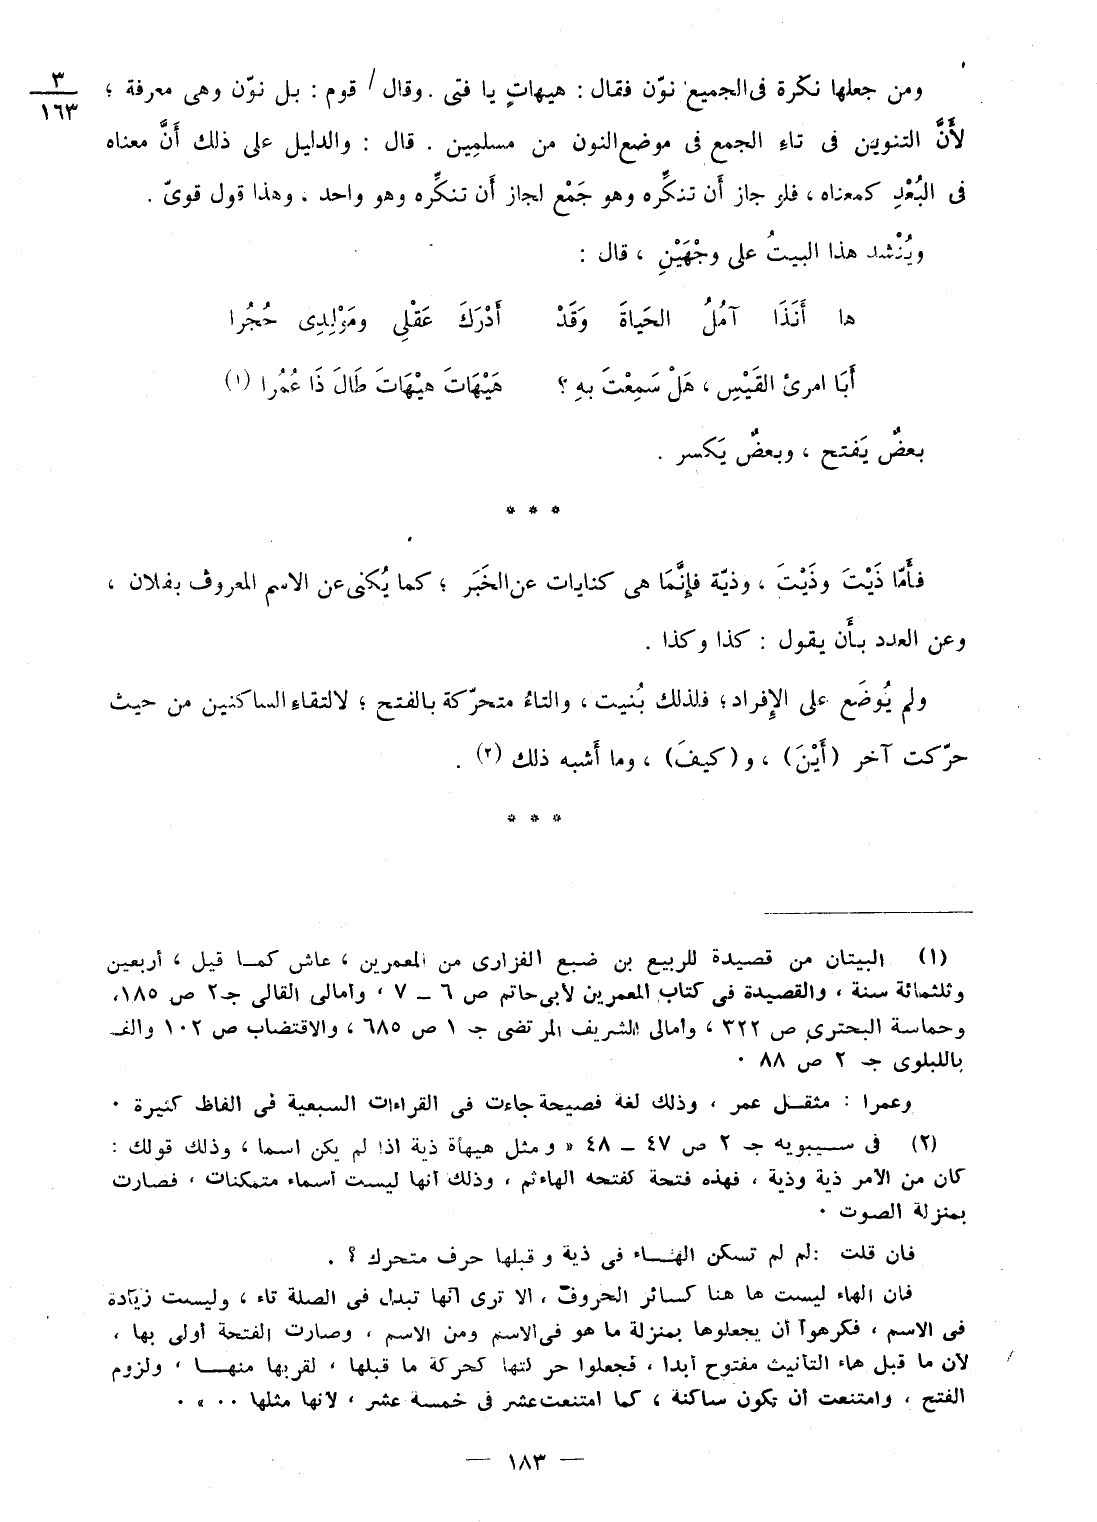 ومن جعلها نكرة فى الجميع نوّن فقال : هيهاتٍ يا فتى . وقال / قوم : بل نوّن وهى معرفة ؛
٣
١٦٣
لأَنَّ التنوين فى تاءِ الجمع فى موضع النون من مسلمِين . قال : والدليل على ذلك أَنَّ معناه
فى البُعْدِ كمعناه ، فلو جاز أَن تنكِّره وهو جَمْع لجاز أَن تنكِّره وهو واحد . وهذا قول قوىّ .
ويُنْشد هذا البيتُ على وجْهَيْنِ ، قال :
ها أَنَذَا آمُلُ الحَياةَ وَقَدْ أَدْرَكَ عَقْلِى ومَوْلِدِى حُجُرا
أَبَا امرئ القَيْسِ ، هَلْ سَمِعْتَ بهِ ؟ هَيْهَاتَ هيْهَاتَ طَالَ ذَا عُمُرا (١)
بعضٌ يَفتح ، وبعضٌ يَكسر .
* * *
فأَمّا ذَيْتَ وذَيْتَ ، وذيّة فإنَّمَا هى كنايات عن الخَبَر ؛ كما يُكنى عن الاسم المعروف بفلان ،
وعن العدد بأَن يقول : كذا وكذا .
ولم يُوضَع على الإِفراد ؛ فلذلك بُنيت ، والتاءُ متحرّكة بالفتح ؛ لالتقاءِ الساكنين من حيث
حرّكت آخر (أَيْنَ) ، و (كيفَ) ، وما أَشبه ذلك (٢) .
* * *
(١) البيتان من قصيدة للربيع بن ضبع الفزارى من المعمرين ، عاش كما قيل ، أربعين
وثلثمائة سنة ، والقصيدة فى كتاب المعمرين لأبى حاتم ص ٦ ـ ٧ ، وأمالى القالى جـ٢ ص ١٨٥،
وحماسة البحترى ص ٣٢٢ ، وأمالى الشريف المرتضى جـ ١ ص ٦٨٥ ، والاقتضاب ص ١٠٢ والف
باللبلوى جـ ٢ ص ٨٨ ٠
وعمرا : مثقل عمر ، وذلك لغة فصيحة جاءت فى القراءات السبعية فى الفاظ كثيرة ٠
(٢) فى سيبويه جـ ٢ ص ٤٧ ـ ٤٨ « ومثل هيهأة ذية اذا لم يكن اسما ، وذلك قولك :
كان من الأمر ذية وذية ، فهذه فتحة كفتحه الهاءثم ، وذلك أنها ليست أسماء متمكنات ، فصارت
بمنزلة الصوت ٠
فان قلت : لم لم تسكن الهاء فى ذية و قبلها حرف متحرك ؟ .
فان الهاء ليست ها هنا كسائر الحروف ، الا ترى أنها تبدل فى الصلة تاء ، وليست زيادة
فى الاسم ، فكرهوا أن يجعلوها بمنزلة ما هو فى الاسم ومن الاسم ، وصارت الفتحة أولى بها ،
لأن ما قبل هاء التأنيث مفتوح أبدا ، فجعلوا حركتها كحركة ما قبلها ، لقربها منها ، ولزوم
الفتح ، وامتنعت أن تكون ساكنة ، كما امتنعت عشر فى خمسة عشر ، لأنها مثلها ٠٠ » ٠
— ١٨٣ —